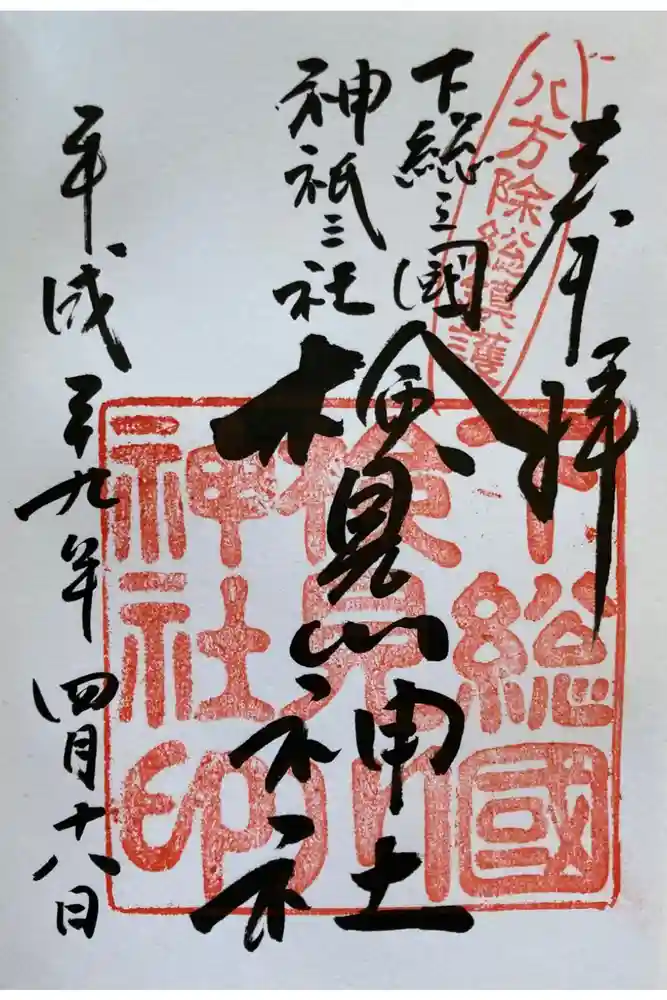 八方除総鎮護
奉拝
下総三國
神祇三社
検見川神社
平成二十九年四月十八日
下総國
検見川
神社印